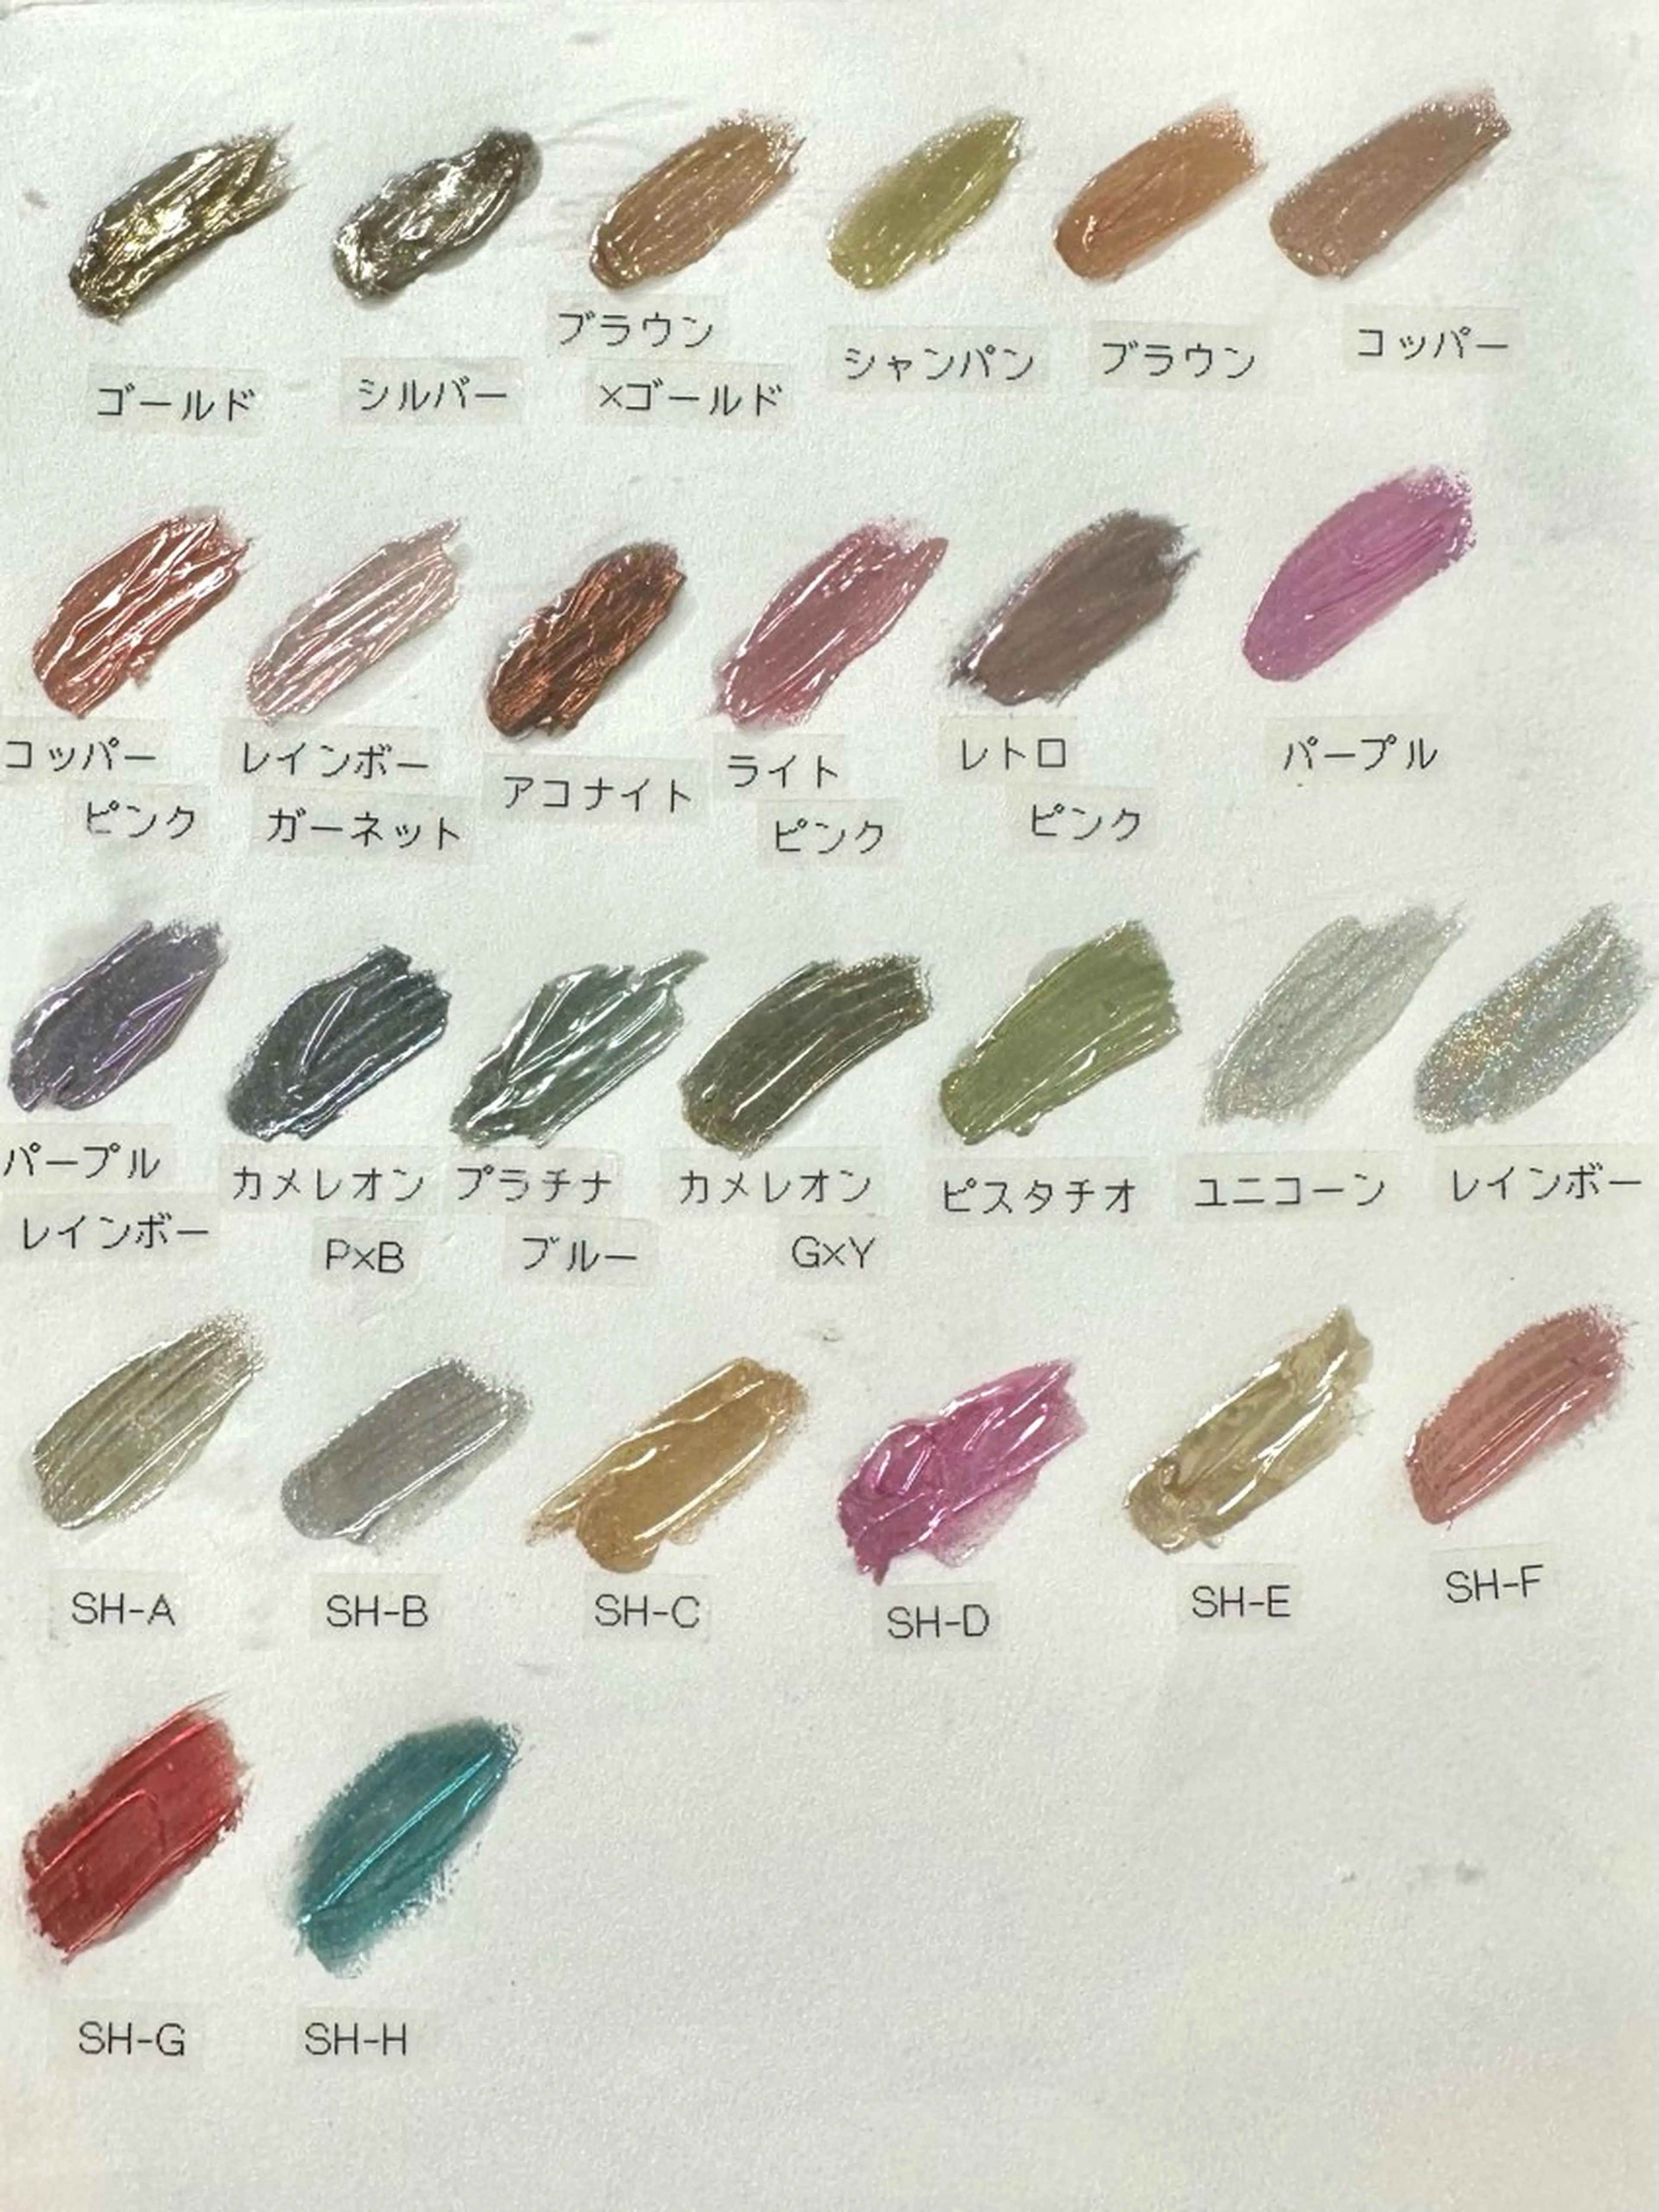 ゴールド
シルバー
ブラウン
×ゴールド
シャンパン
ブラウン
コッパー
コッパー
ピンク
レインボー
ガーネット
アコナイト
ライト
ピンク
レトロ
ピンク
パープル
パープル
レインボー
カメレオン
P×B
プラチナ
ブルー
カメレオン
G×Y
ピスタチオ
ユニコーン
レインボー
SH-A
SH-B
SH-C
SH-D
SH-E
SH-F
SH-G
SH-H